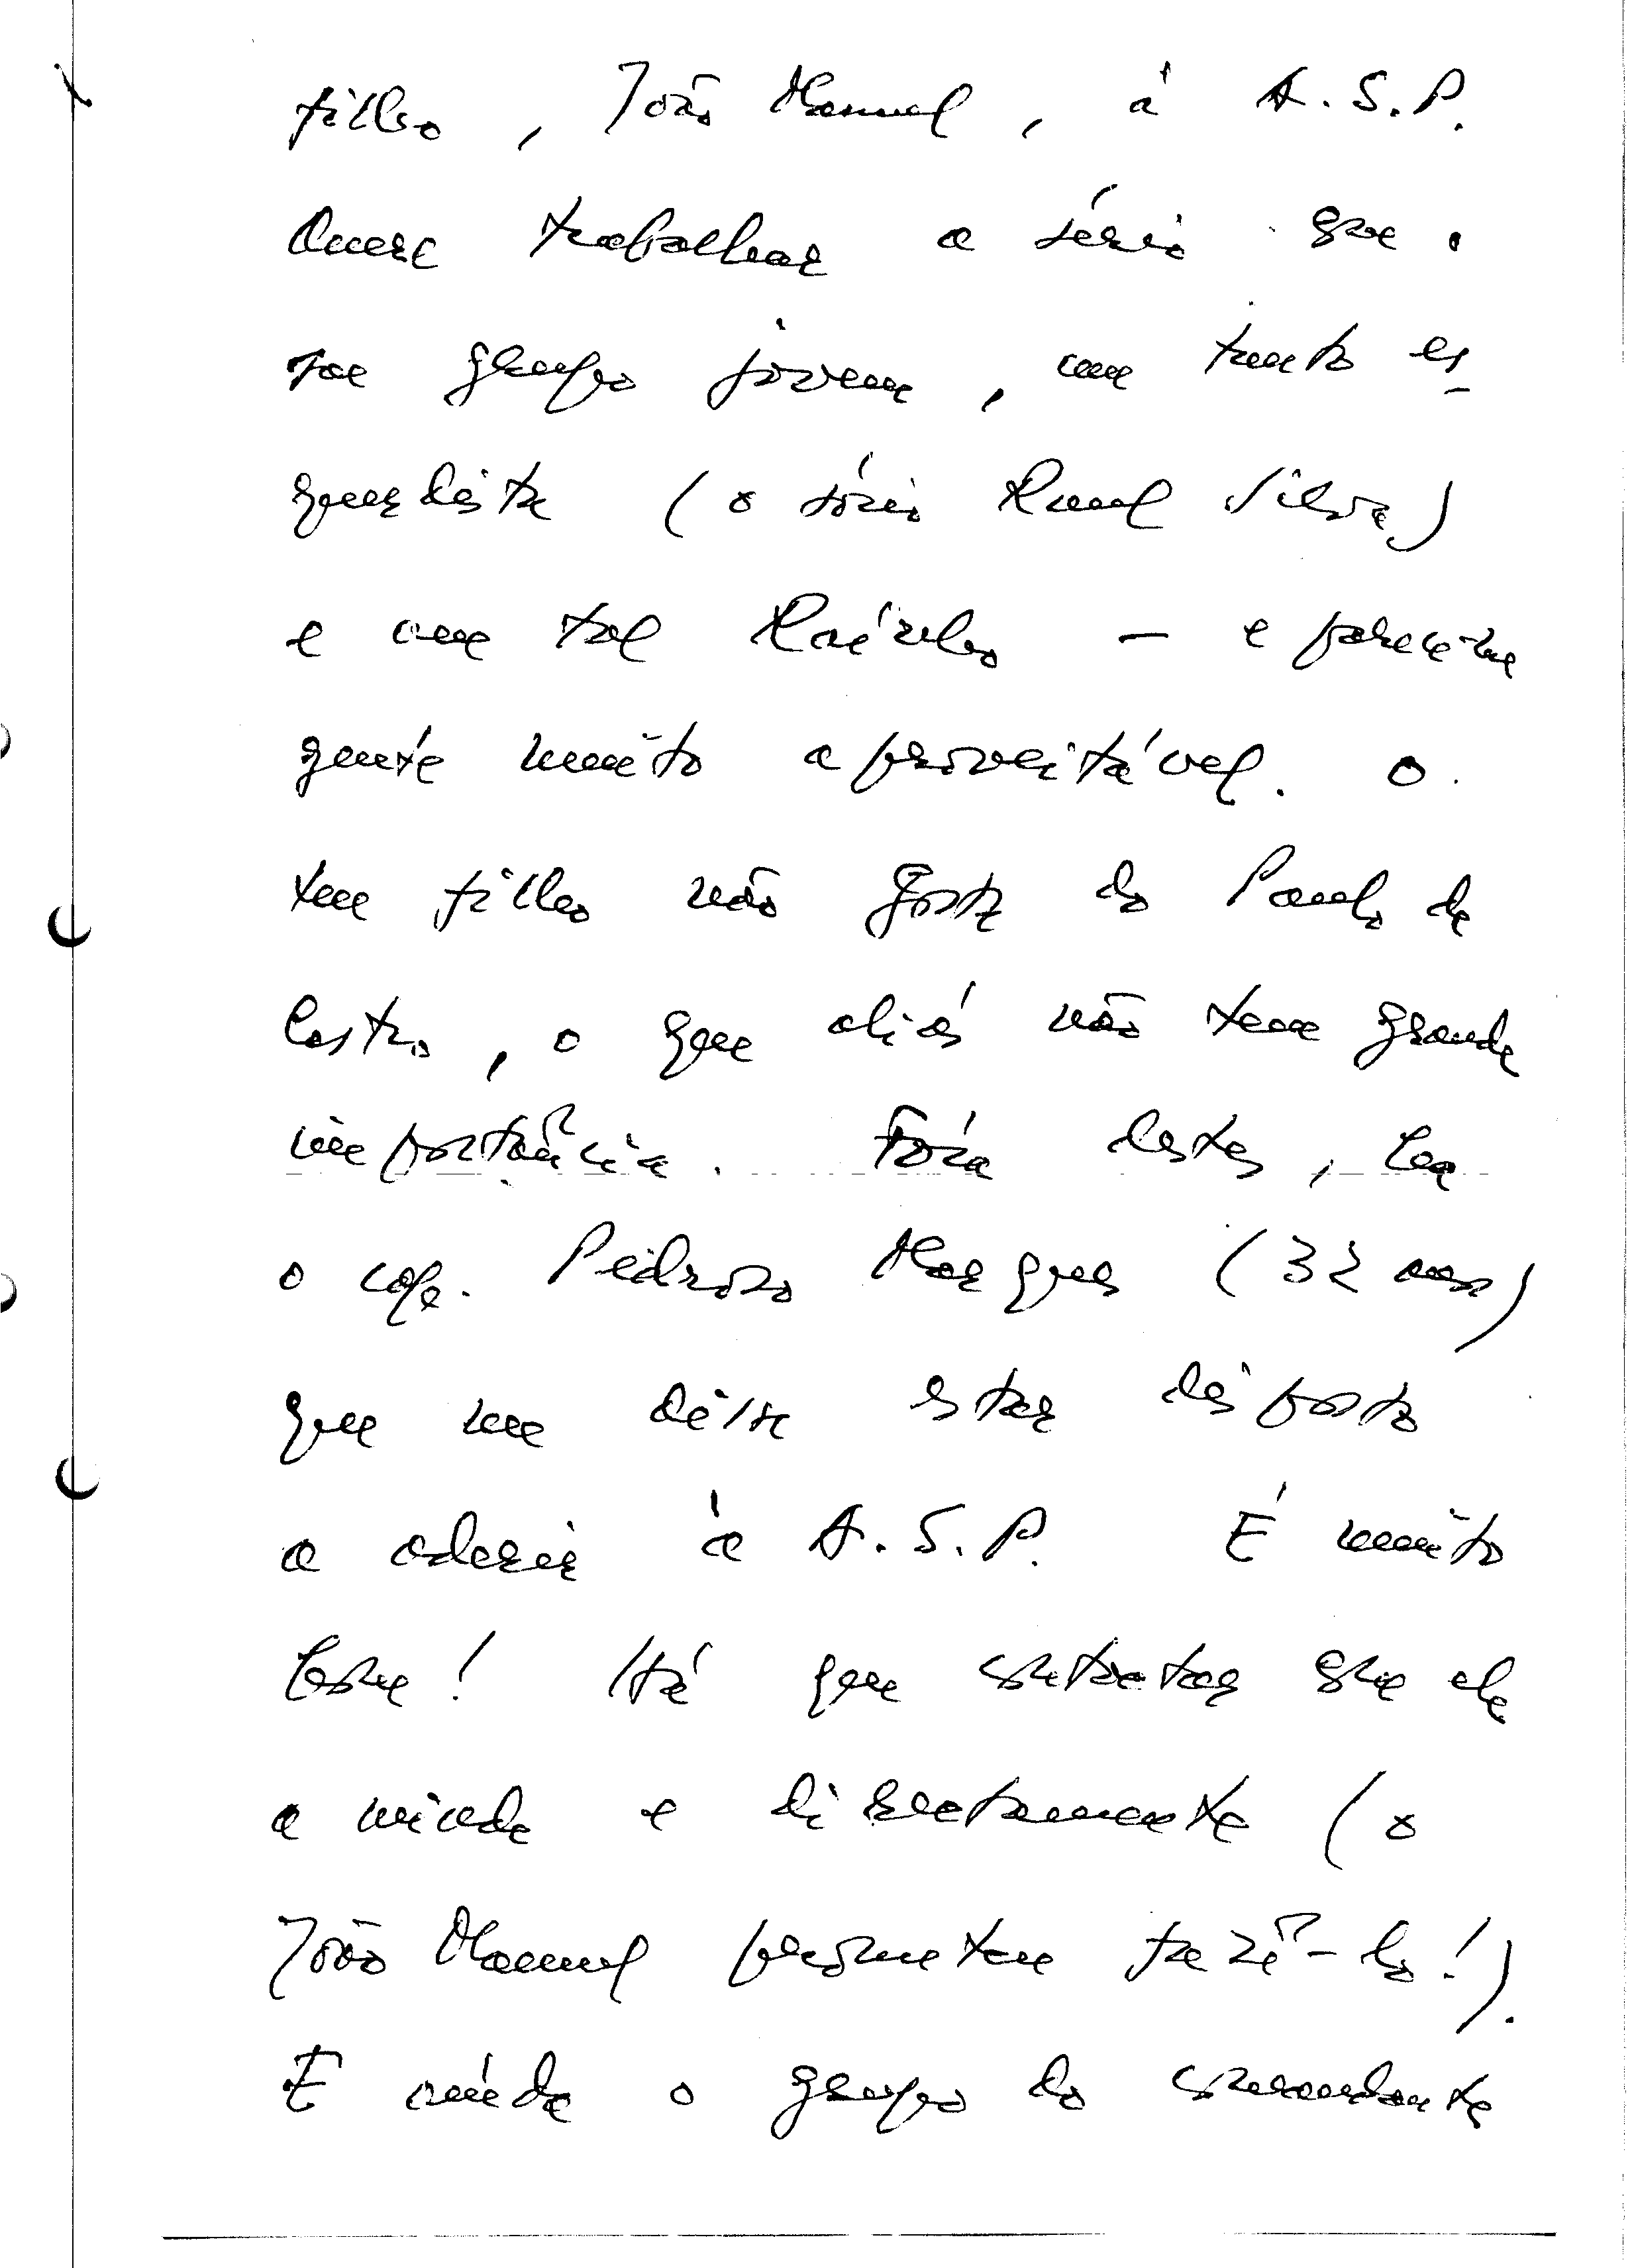 filho, João Manuel, à A.S.P.
Quere trabalhar a sério que
um grupo jovem, um tanto es-
querdista (o sócio Raul Silva)
e um tal — e parece-me
gente muito aproveitável. O
teu filho não gosta do Paulo de
Castro, o que aliás não tem grande
importância. Fóra destes, há
o cap. Pedroso Marques (32 anos)
que me disse estar disposto
a aderir à A.S.P. É muito
bom! Há que contactar com ele
ainda e directamente (o
João Manuel prometeu fazê-lo!).
E ainda o grupo do comandante